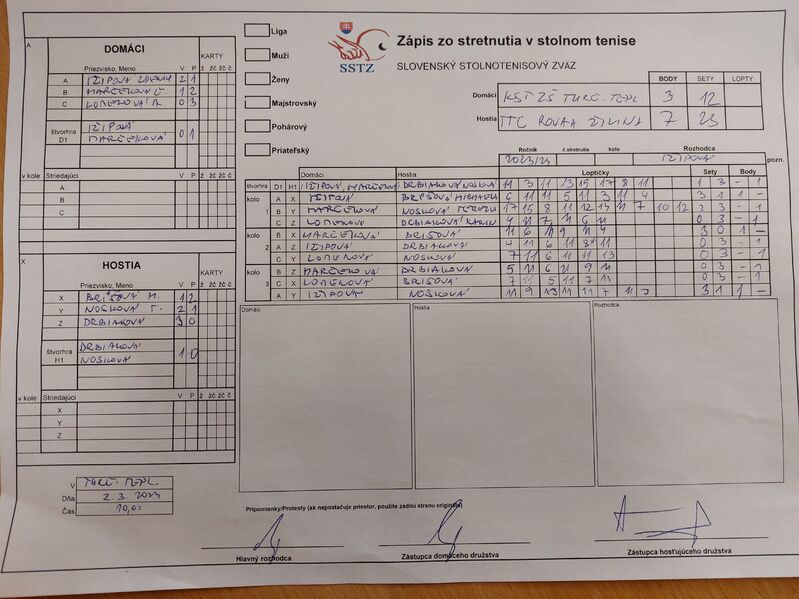 Zápis zo stretnutia v stolnom tenise
SLOVENSKÝ STOLNOTENISOVÝ ZVÄZ
SSTZ
Liga
Muži
Ženy
Majstrovský
Pohárový
Priateľský
BODY SETY LOPTY
Domáci KST ZŠ TURC. TEPL. 3 12
Hostia TTC ROVAA ŽILINA 7 23
Ročník č.stretnutia kolo Rozhodca
2023/24 IZIPOVÁ pozn.
A
DOMÁCI
KARTY
Priezvisko, Meno V P ž žč žč č
A IZIPOVÁ 2 1
B MARČEKOVÁ 1 2
C 0 3
štvorhra D1 IZIPOVÁ MARČEKOVÁ 0 1
v kole Striedajúci V P ž žč žč č
A
B
C
X
HOSTIA
KARTY
Priezvisko, Meno V P ž žč žč č
X M. 1 2
Y NOSKOVÁ T. 2 1
Z DRBIAKOVÁ 3 0
štvorhra H1 DRBIAKOVÁ NOSKOVÁ 1 0
v kole Striedajúci V P ž žč žč č
X
Y
Z
V TURC. TEPL.
Dňa 2.3 2024
Čas 10,00
Domáci Hostia Loptičky Sety Body
štvorhra D1 H1 IZIPOVÁ, DRBIAKOVÁ NOSKOVÁ 11 3 11 13 15 17 8 11 1 3 - 1
kolo A X IZIPOVÁ MICHAELA 6 11 11 5 11 3 11 4 3 1 1 -
1 B Y MARČEKOVÁ NOSKOVÁ TEREZA 17 15 8 11 12 14 11 7 10 12 2 3 - 1
C Z DRBIAKOVÁ KARIN 4 11 7 11 6 11 0 3 - 1
kolo B X MARČEKOVÁ 11 6 11 9 11 4 3 0 1 -
2 A Z IZIPOVÁ DRBIAKOVÁ 4 11 6 11 8 11 0 3 - 1
C Y NOSKOVÁ 7 11 6 11 11 13 0 3 - 1
kolo B Z MARČEKOVÁ DRBIAKOVÁ 5 11 6 11 9 11 0 3 - 1
3 C X 7 11 5 11 7 11 0 3 - 1
A Y IZIPOVÁ NOSKOVÁ 11 9 13 11 11 7 11 3 1 1 -
Domáci
Hostia
Rozhodca
Pripomienky/Protesty (ak nepostačuje priestor, použite zadnú stranu originálu)
Hlavný rozhodca
Zástupca domáceho družstva
Zástupca hosťujúceho družstva